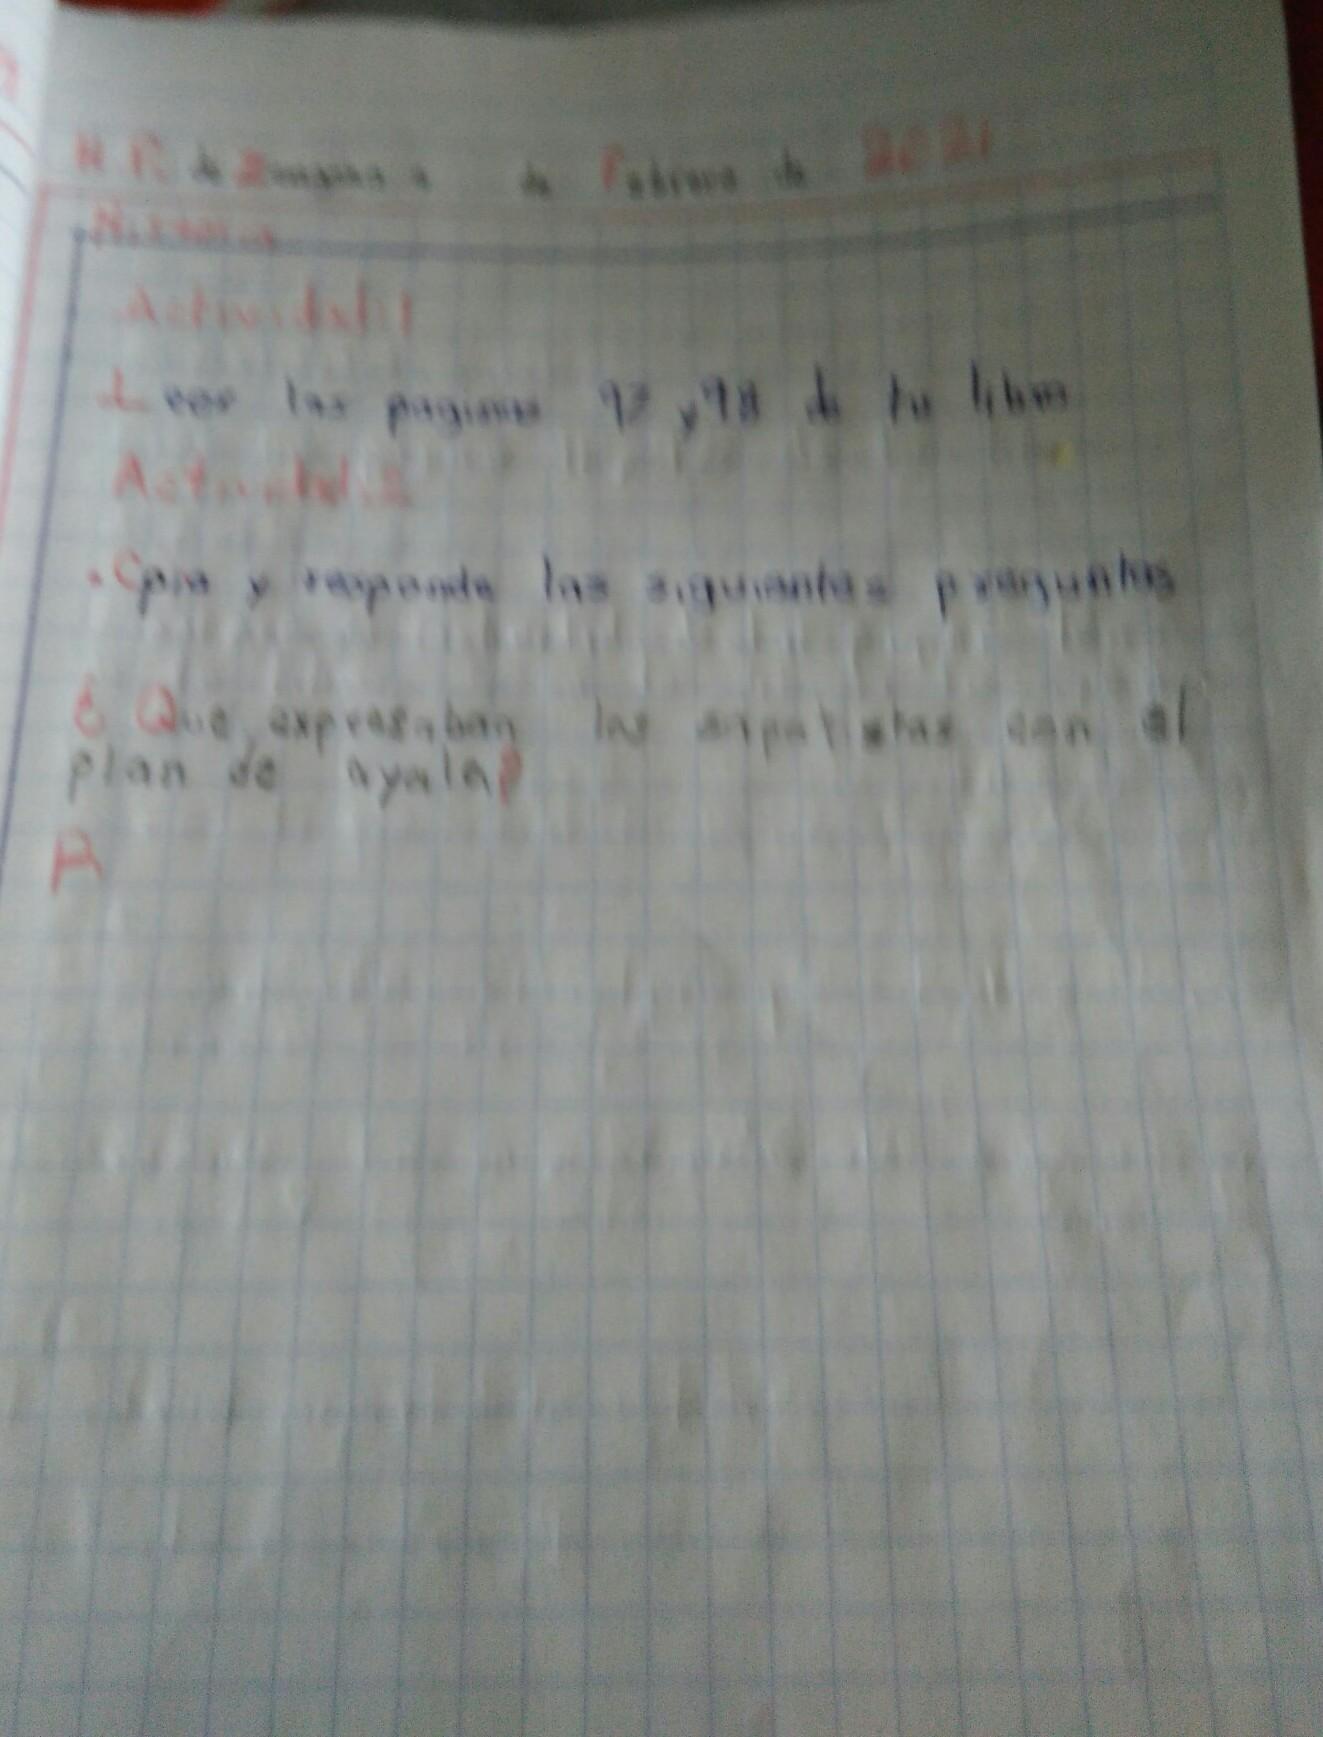 de Febrero de 2021
Historia
Actividad:1
Leer las paginas 97 y 98 de tu libro
Actividad:2
. Copia y responde las siguientes preguntas
¿Que expresaban los zapatistas con el
plan de ayala?
R